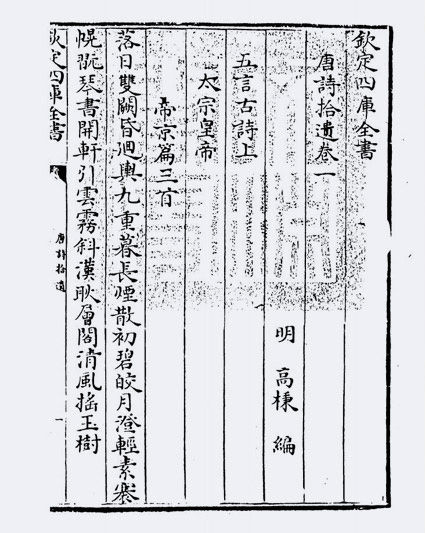 欽定四庫全書
唐詩拾遺卷一
明 高棅 編
五言古詩上
太宗皇帝
帝京篇三首
落日雙闕昏廻輿九重暮長煙散初碧皎月澄輕素搴
幌翫琴書開軒引雲霧斜漢耿層閣清風搖玉樹
欽定四庫全書
唐詩拾遺
一